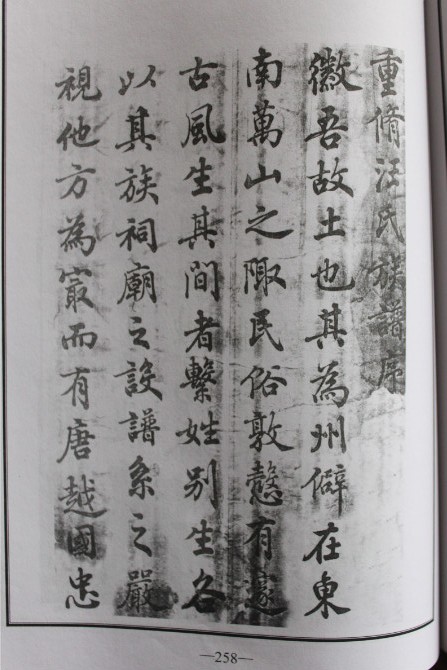 重脩汪氏族譜序
徽吾故土也其為州僻在東
南萬山之陬民俗敦慤有邃
古風生其間者繫姓別生各
以其族祠廟之設譜系之嚴
視他方為冣而有唐越國忠
—258—